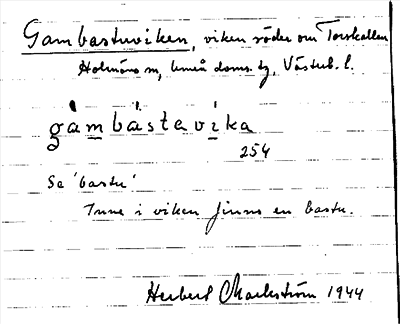 Gambastuviken, viken söder om Torskallen
Holmöns sn, Umeå doms. tg, Västerb. l.
gàmbástavíka
254
Se 'bastu'
Inne i viken finns en bastu.
Herbert Markström 1944